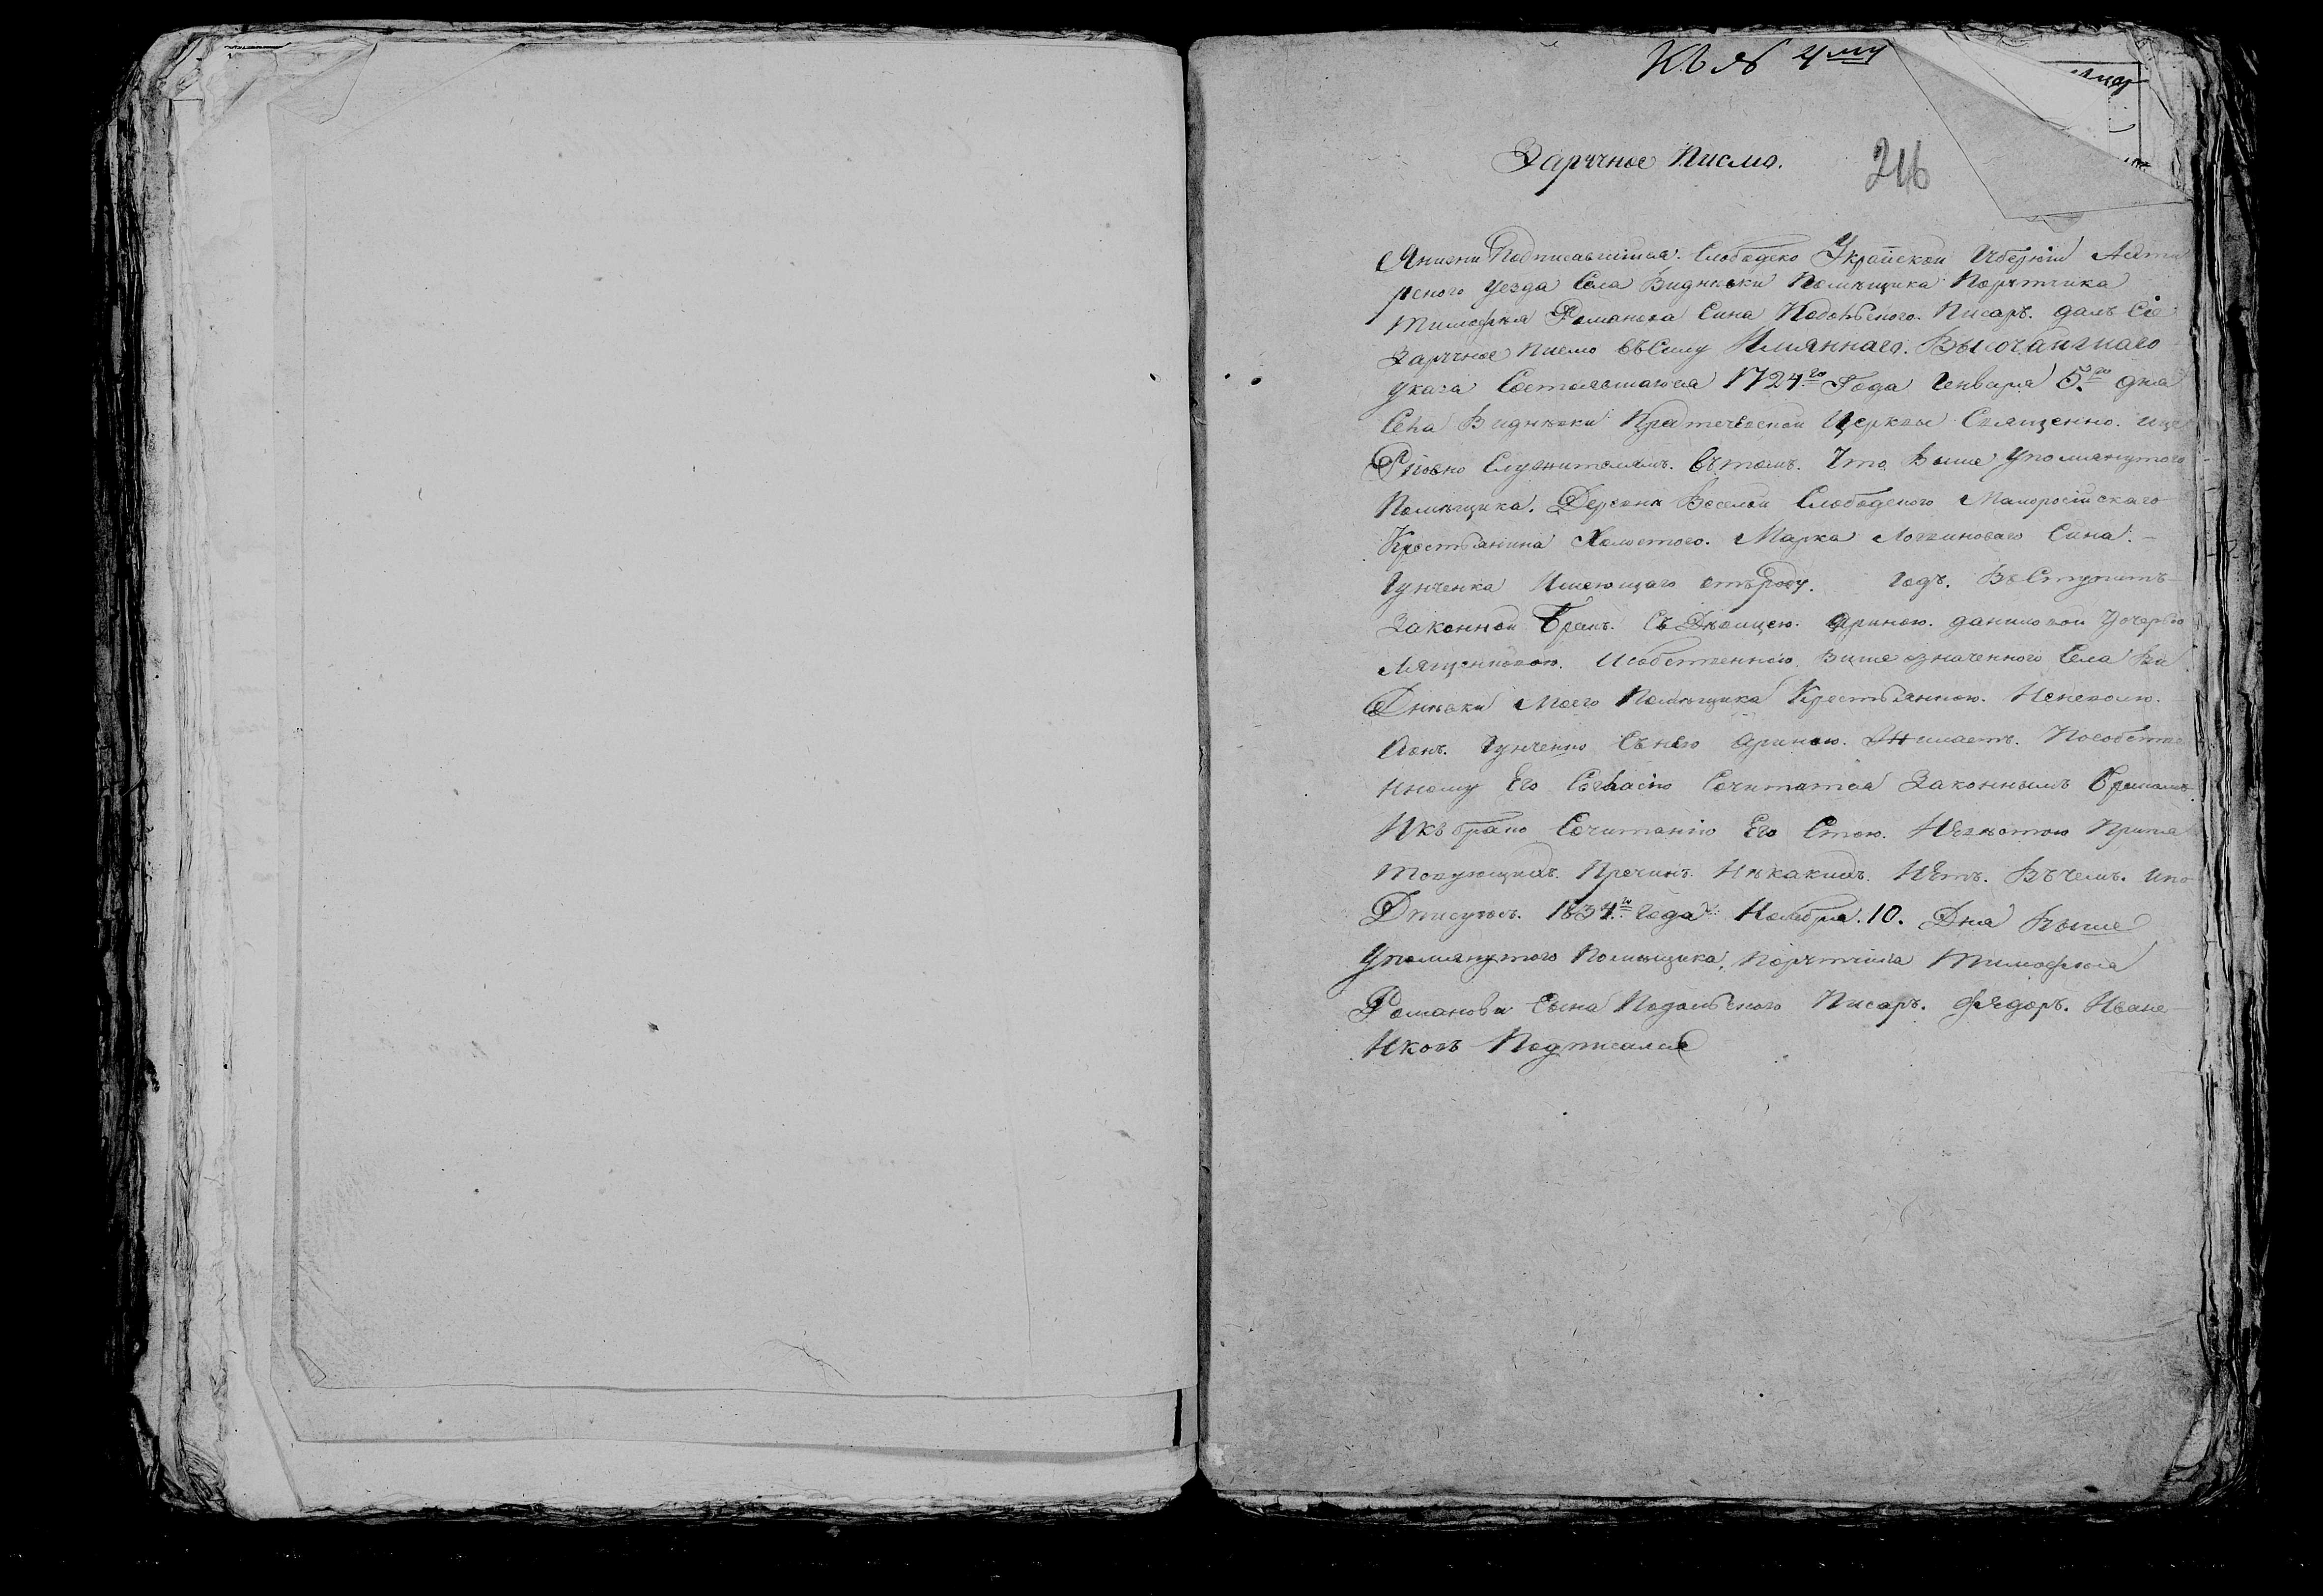 Къ № 4му
Заручное Писмо.
246
Янизи Подписавшійся. Слободско Украинской Губерніи Ахти
рского уезда Села Виднѣвки Помѣщика Порутчика
Тимофѣя Романова Сина Подолского. Писарь. далъ Сіе
Заручное Писмо въСилу Имяннаго. Высочайшаго
Указа Состоявшагося 1724го Года Генваря 5.го дня
Села Виднѣвки Церкви Священно. иЦе
Рковно Служителямъ. вътомъ. Что Выше Упомянутого
Помѣщика. Деревни Веселой Слободского Малоросійскаго
Крестьянина Холостого. Марка Логвиноваго Сина. —
Гунченка Имеющаго отъроду. годъ. ВъСтупить
Законной Бракъ. Съ Дѣвицею. Ариною. даниловой Дочерью
Исобственною. Вишеозначенного Села Ви
Днѣвки Моего Помѣщика Крестьянкою. Неневолю.
Аонъ. Гунченко Сънею Ариною. Желаетъ. Пособстве
нному Его Сгласію Сочитатся Законнымъ Бракомъ.
Икъбрако Сочитанію Его Стою. Препя
Тсвующихъ. Пречинъ. Нѣкакихъ. Нѣтъ. Въчемъ. ипо
Дписуюсъ. 1834.го года Ноября. 10. Дня Выше
Упомянутого Помѣщика, Порутчика Тимофѣя
Романова Сына Подольского Писарь. Фядоръ. Иване
Нковъ Подписался